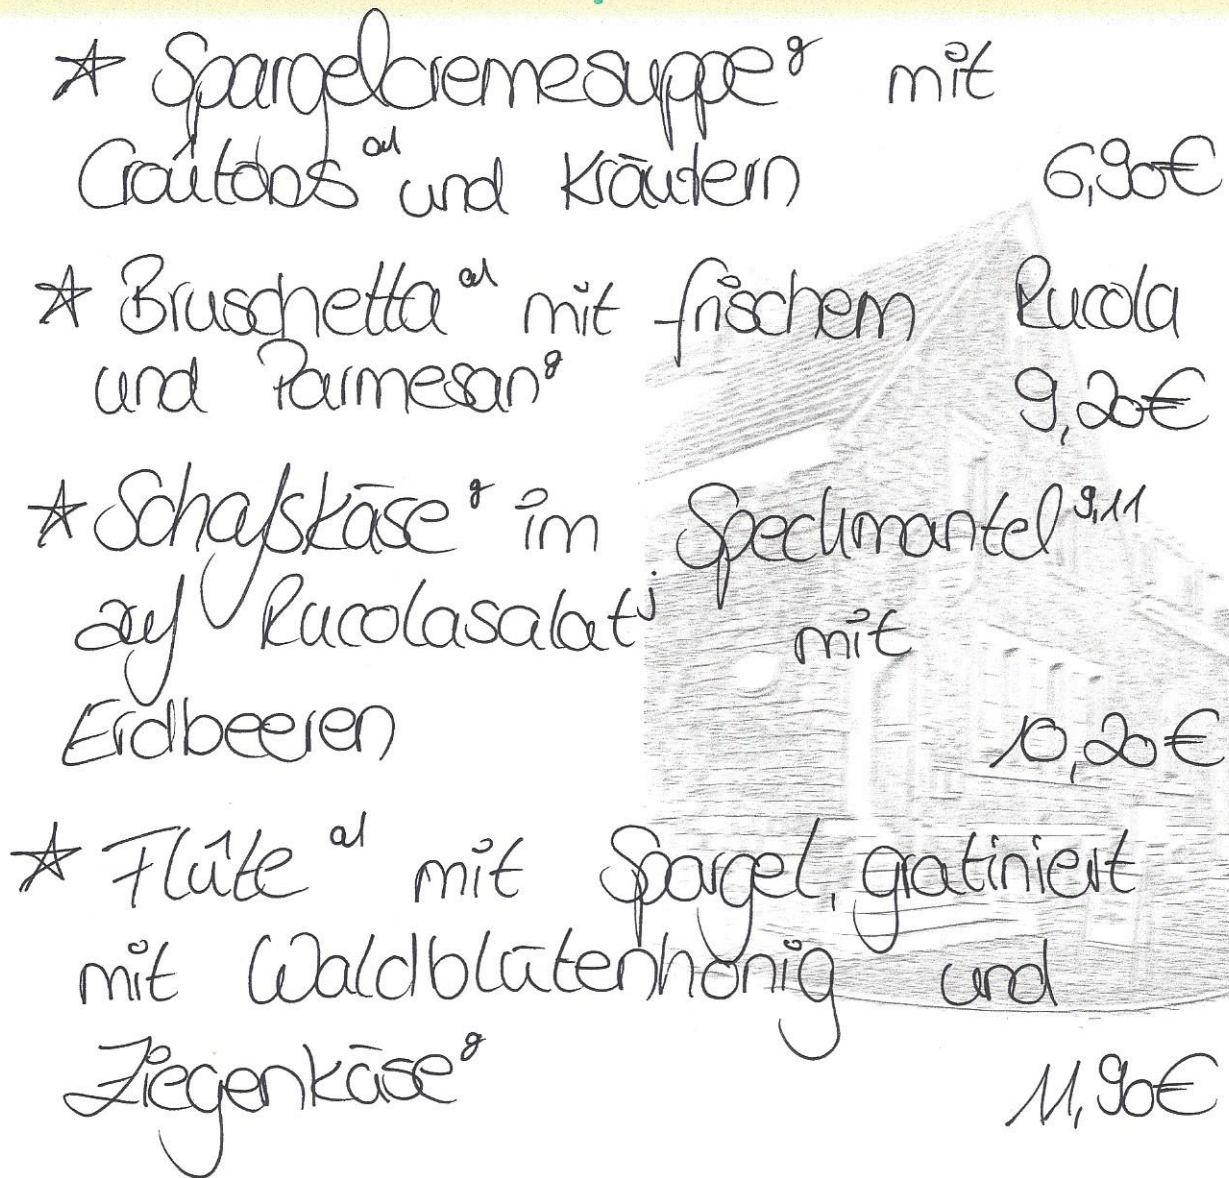 ☆ Spargelcremesuppe ᵍ mit
Croûtons ᵃ¹ und Kräutern 6,90€
☆ Bruschetta ᵃ¹ mit frischem Rucola
und Parmesan ᵍ 9,20€
☆ Schafskäse ᵍ im Speckmantel ⁹,¹¹
auf Rucolasalat ʲ mit
Erdbeeren 10,20€
☆ Flûte ᵃ¹ mit Spargel, gratiniert
mit Waldblütenhonig und
Ziegenkäse ᵍ 11,90€